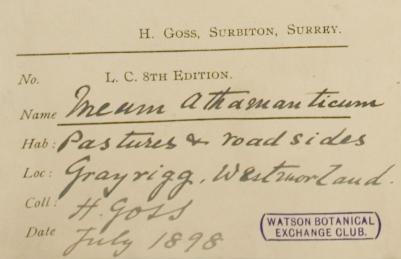 H. GOSS, SURBITON, SURREY.
No. L. C. 8TH EDITION.
Name Meum Athamanticum
Hab: Pastures & road sides
Loc: Grayrigg, Westmorland.
Coll: H. Goss
Date July 1898
WATSON BOTANICAL
EXCHANGE CLUB.